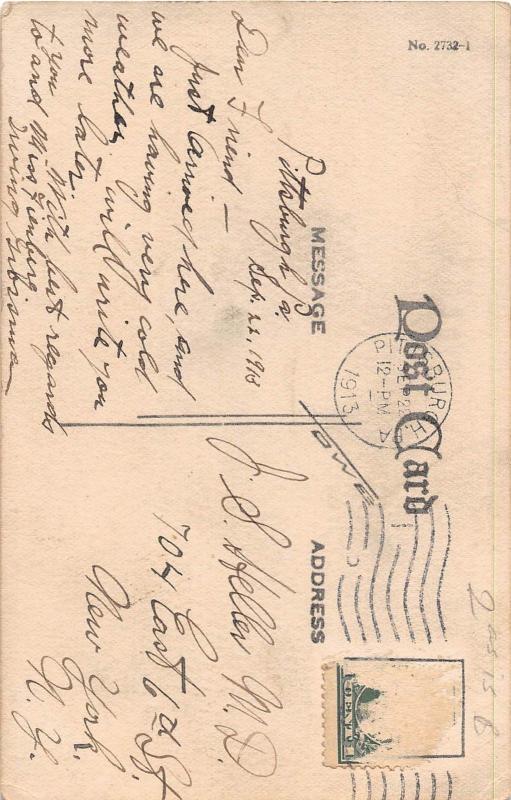 No. 2732-1
Post Card
MESSAGE
ADDRESS
PITTSBURGH
P A
SEP 22
12-PM
1913
Pittsburgh Pa.
Sep. 22, 1913
Dear Friend —
Just arrived here, and
we are having very cold
weather, will write you
more later.
With best regards
to you
to and Miss
Irving
J. S. Heller M. D.
704 East 6th St
New York.
N. Y.
CENT